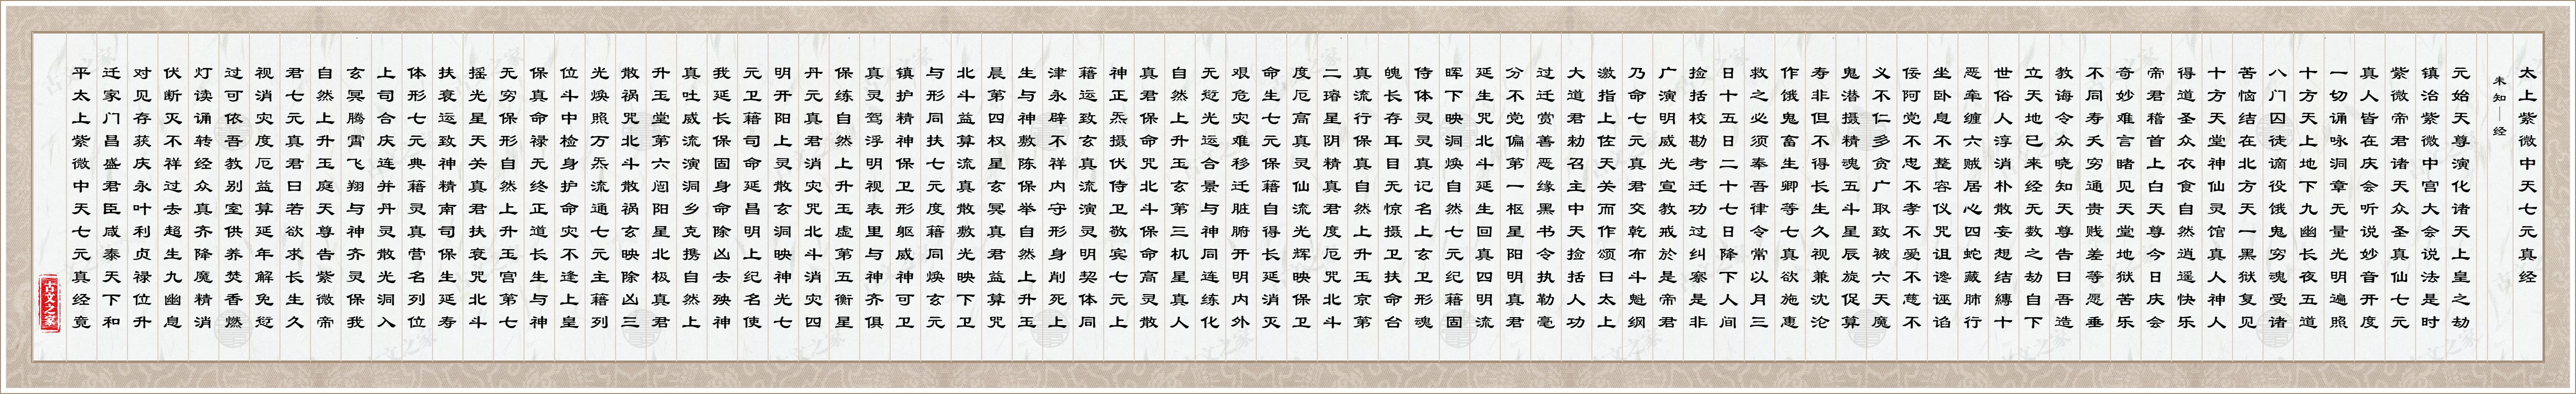 太上紫微中天七元真经
未知—经
元始天尊演化诸天上皇之劫
镇治紫微中宫大会说法是时
紫微帝君诸天众圣真仙七元
真人皆在庆会听说妙音开度
一切诵咏洞章无量光明遍照
十方天上地下九幽长夜五道
八门囚徒谪役饿鬼穷魂受诸
苦恼结在北方天一黑狱复见
十方天堂神仙灵馆真人神人
得道圣众衣食自然逍遥快乐
帝君稽首上白天尊今日庆会
奇妙难言睹见天堂地狱苦乐
不同寿夭穷通贵贱差等愿垂
教诲令众晓知天尊告曰吾造
立天地已来经无数之劫自下
世俗人淳消朴散妄想结缚十
恶牵缠六贼居心四蛇藏肺行
坐卧息不整容仪咒诅谗诬谄
佞阿党不忠不孝不爱不慈不
义不仁多贪广取致被六天魔
鬼潜摄精魂五斗星辰旋促算
寿非但不得长生久视兼沈沦
作饿鬼畜生卿等七真欲施惠
救之必须奉吾律令常以月三
日十五日二十七日降下人间
捡括校勘考迁功过纠察是非
广演明威光宣教戒於是帝君
乃命七元真君交乾布斗魁纲
激指上佐天关而作颂曰太上
大道君勑召主中天捡括人功
过迁赏善恶缘黑书令执勒毫
分不党偏第一枢星阳明真君
延生咒北斗延生回真四明流
晖下映洞焕自然七元纪藉固
侍体灵灵真记名上玄卫形魂
魄长存耳目无惊摄卫扶命台
真流行保真自然上升玉京第
二璿星阴精真君度厄咒北斗
度厄高真灵仙流光辉映保卫
命生七元保藉自得长延消灭
艰危灾难移迁脏腑开明内外
无愆光运合景与神同连练化
自然上升玉玄第三机星真人
真君保命咒北斗保命高灵散
神正炁摄伏侍卫敬宾七元上
藉运致玄真流演灵明契体同
津永辟不祥内守形身削死上
生与神敷陈保举自然上升玉
晨第四权星玄冥真君益算咒
北斗益算流真散敷光映下卫
与形同扶七元度藉同焕玄元
镇护精神保卫形躯威神可卫
真灵驾浮明视表里与神齐俱
保练自然上升玉虚第五衡星
丹元真君消灾咒北斗消灾四
明开阳上灵散玄洞映神光七
元卫藉司命延昌明上纪名使
我延长保固身命除凶去殃神
真吐威流演洞乡克携自然上
升玉堂第六闿阳星北极真君
散祸咒北斗散祸玄映除凶三
光焕照万炁流通七元主藉列
位斗中检身护命灾不逢上皇
保真命禄无终正道长生与神
无穷保形自然上升玉宫第七
摇光星天关真君扶衰咒北斗
扶衰运致神精南司保生延寿
体形七元典藉灵真营名列位
上司合庆连并丹灵散光洞入
玄冥腾霄飞翔与神齐灵保我
自然上升玉庭天尊告紫微帝
君七元真君曰若欲求长生久
视消灾度厄益算延年解免愆
过可依吾教别室供养焚香燃
灯读诵转经众真齐降魔精消
伏断灭不祥过去超生九幽息
对见存获庆永叶利贞禄位升
迁家门昌盛君臣咸泰天下和
平太上紫微中天七元真经竟
古文之家